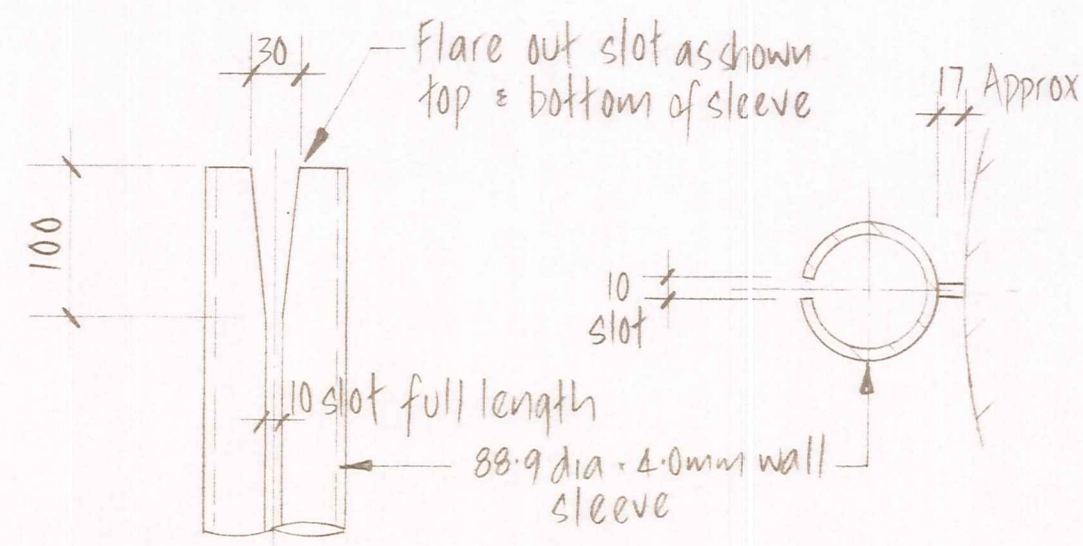 30
Flare out slot as shown
top & bottom of sleeve
17 Approx
100
10
slot
10 slot full length
88.9 dia × 4.0mm wall
sleeve